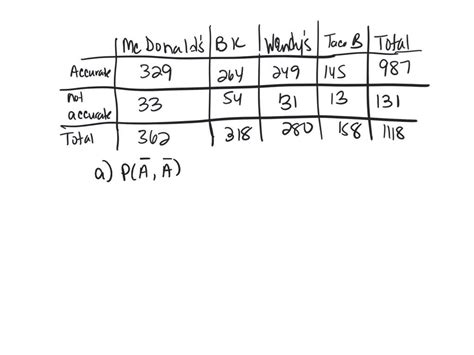 McDonald's BK Wendy's Taco B Total
Accurate 329 264 249 145 987
not accurate 33 54 31 13 131
Total 362 318 280 158 1118
a) P(Ā, Ā)